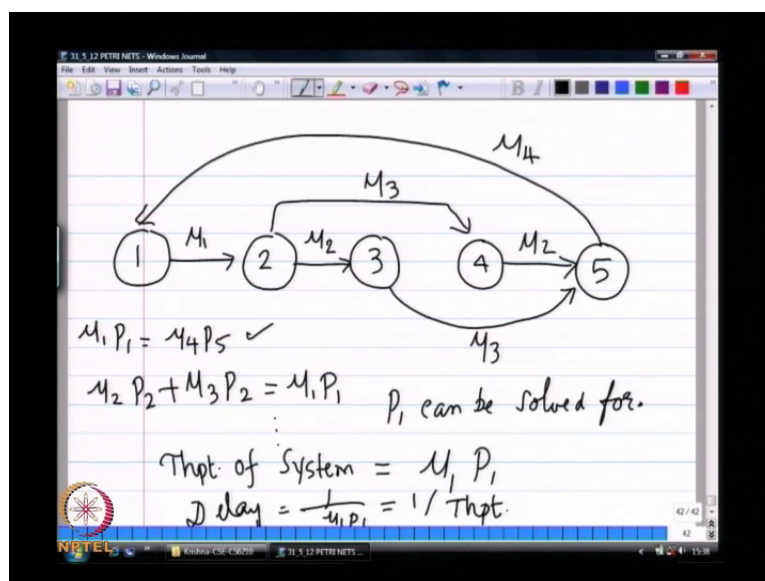 31_5_12 PETRI NETS - Windows Journal
File Edit View Insert Actions Tools Help
B I
μ4
μ3
μ1 μ2 μ2
1 2 3 4 5
μ3
μ1P1 = μ4P5 ✓
μ2P2 + μ3P2 = μ1P1
P1 can be solved for.
⋮
Thpt. of System = μ1P1
Delay = 1/μ1P1 = 1/Thpt.
42/42
42
NPTEL
Krishna-CSE-CS6210 31_5_12 PETRI NETS ...
15:38